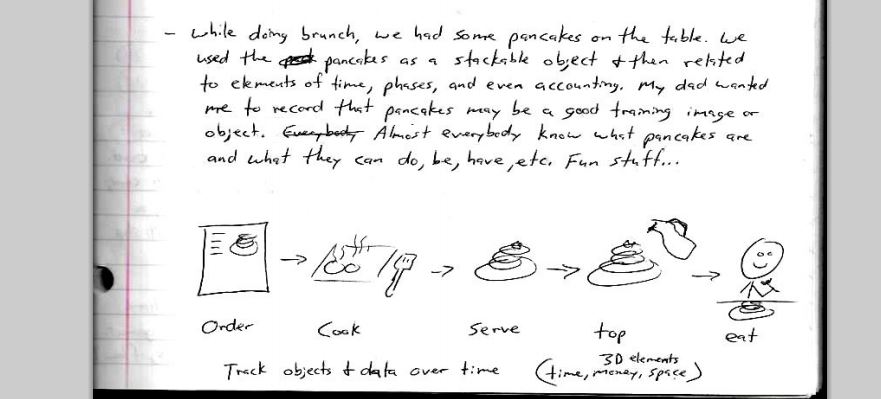 - while doing brunch, we had some pancakes on the table. We
used the pancakes as a stackable object & then related
to elements of time, phases, and even accounting. My dad wanted
me to record that pancakes may be a good training image or
object. Everybody Almost everybody know what pancakes are
and what they can do, be, have, etc. Fun stuff...
Order Cook Serve top eat
3D elements
Track objects & data over time (time, money, space)